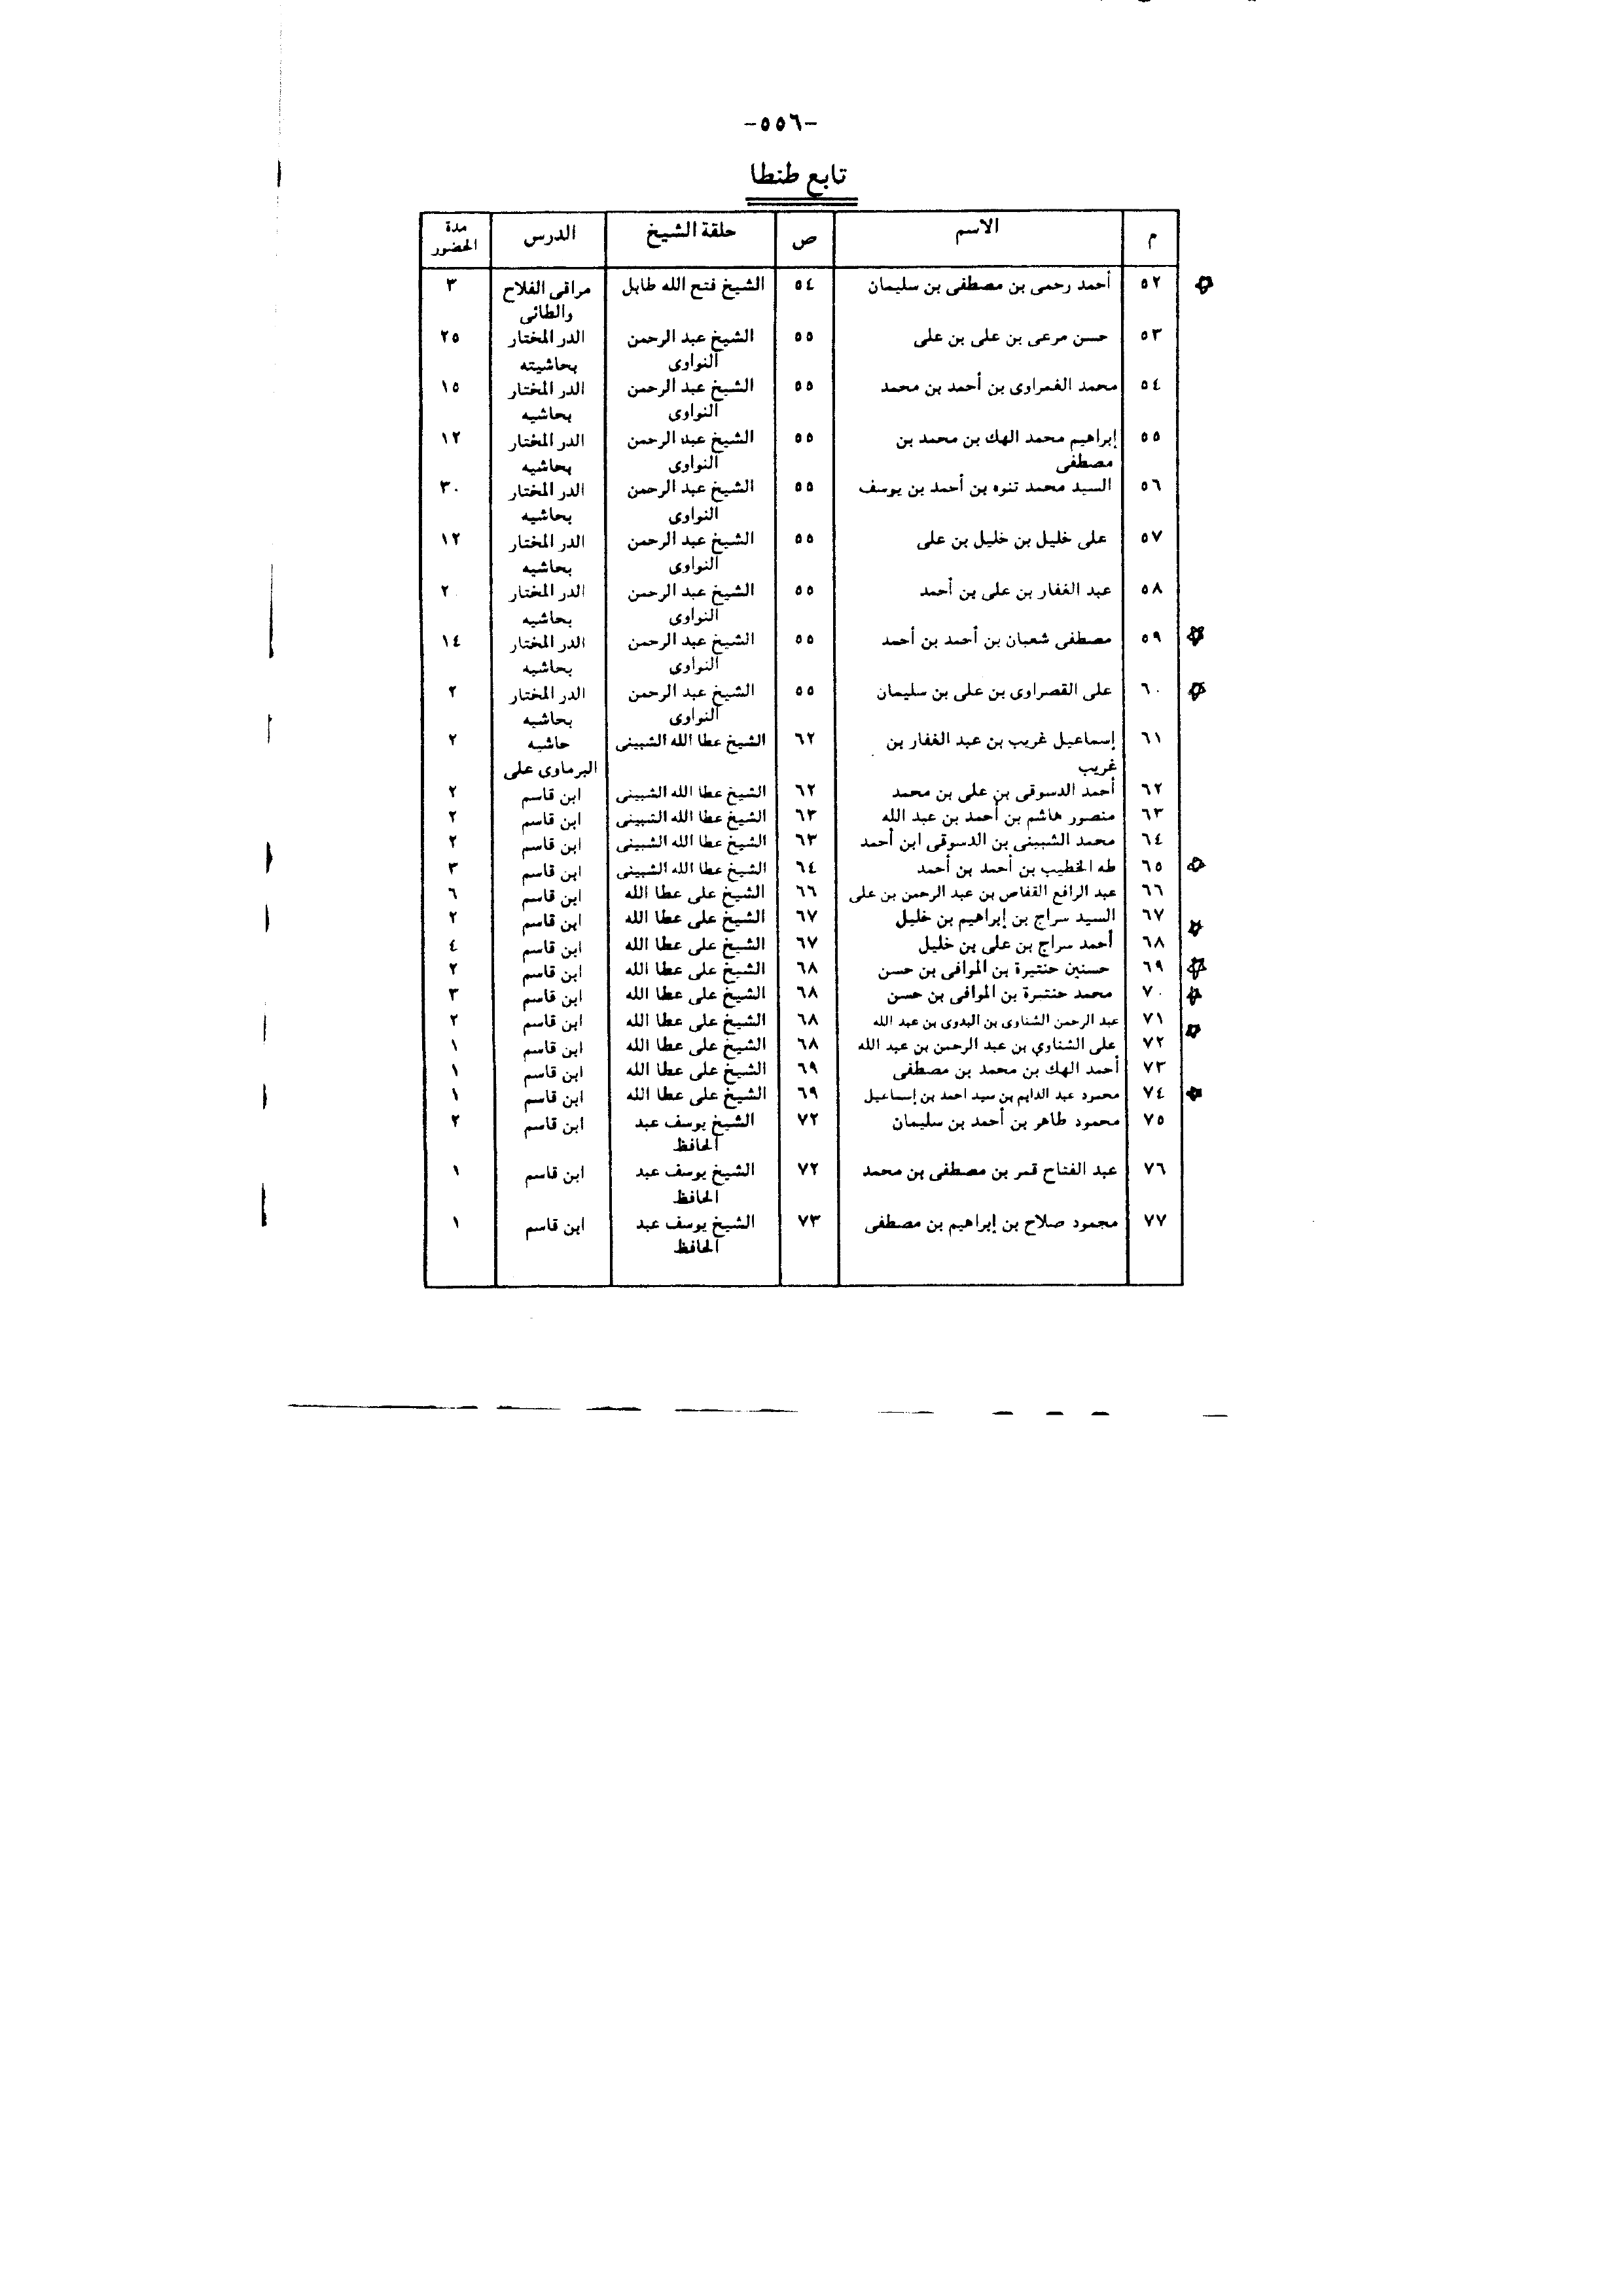 -٥٥٦-
تابع طنطا
م الاسم ص حلقة الشيخ الدرس مدة الحضور
٥٢ أحمد رحمى بن مصطفى بن سليمان ٥٤ الشيخ فتح الله طايل مراقى الفلاح ٣
والطائى
٥٣ حسن مرعى بن على بن على ٥٥ الشيخ عبد الرحمن الدر المختار ٢٥
النواوى بحاشيته
٥٤ محمد الغمراوى بن أحمد بن محمد ٥٥ الشيخ عبد الرحمن الدر المختار ١٥
النواوى بحاشيه
٥٥ إبراهيم محمد الهك بن محمد بن ٥٥ الشيخ عبد الرحمن الدر المختار ١٢
مصطفى النواوى بحاشيه
٥٦ السيد محمد تنوه بن أحمد بن يوسف ٥٥ الشيخ عبد الرحمن الدر المختار ٣٠
النواوى بحاشيه
٥٧ على خليل بن خليل بن على ٥٥ الشيخ عبد الرحمن الدر المختار ١٢
النواوى بحاشيه
٥٨ عبد الغفار بن على بن أحمد ٥٥ الشيخ عبد الرحمن الدر المختار ٢٠
النواوى بحاشيه
٥٩ مصطفى شعبان بن أحمد بن أحمد ٥٥ الشيخ عبد الرحمن الدر المختار ١٤
النواوى بحاشيه
٦٠ على القصراوى بن على بن سليمان ٥٥ الشيخ عبد الرحمن الدر المختار ٢
النواوى بحاشيه
٦١ إسماعيل غريب بن عبد الغفار بن ٦٢ الشيخ عطا الله الشبينى حاشيه ٢
غريب البرماوى على
٦٢ أحمد الدسوقى بن على بن محمد ٦٢ الشيخ عطا الله الشبينى ابن قاسم ٢
٦٣ منصور هاشم بن أحمد بن عبد الله ٦٣ الشيخ عطا الله الشبينى ابن قاسم ٢
٦٤ محمد الشبينى بن الدسوقى ابن أحمد ٦٣ الشيخ عطا الله الشبينى ابن قاسم ٢
٦٥ طه الخطيب بن أحمد بن أحمد ٦٤ الشيخ عطا الله الشبينى ابن قاسم ٣
٦٦ عبد الرافع القفاص بن عبد الرحمن بن على ٦٦ الشيخ على عطا الله ابن قاسم ٦
٦٧ السيد سراج بن إبراهيم بن خليل ٦٧ الشيخ على عطا الله ابن قاسم ٢
٦٨ أحمد سراج بن على بن خليل ٦٧ الشيخ على عطا الله ابن قاسم ٤
٦٩ حسنين حنتيرة بن الموافى بن حسن ٦٨ الشيخ على عطا الله ابن قاسم ٢
٧٠ محمد حنتيرة بن الموافى بن حسن ٦٨ الشيخ على عطا الله ابن قاسم ٣
٧١ عبد الرحمن الشناوى بن البدوى بن عبد الله ٦٨ الشيخ على عطا الله ابن قاسم ٢
٧٢ على الشناوي بن عبد الرحمن بن عبد الله ٦٨ الشيخ على عطا الله ابن قاسم ١
٧٣ أحمد الهك بن محمد بن مصطفى ٦٩ الشيخ على عطا الله ابن قاسم ١
٧٤ محمود عبد الدايم بن سيد احمد بن إسماعيل ٦٩ الشيخ على عطا الله ابن قاسم ١
٧٥ محمود طاهر بن أحمد بن سليمان ٧٢ الشيخ يوسف عبد ابن قاسم ٢
الحافظ
٧٦ عبد الفتاح قمر بن مصطفى بن محمد ٧٢ الشيخ يوسف عبد ابن قاسم ١
الحافظ
٧٧ محمود صلاح بن إبراهيم بن مصطفى ٧٣ الشيخ يوسف عبد ابن قاسم ١
الحافظ